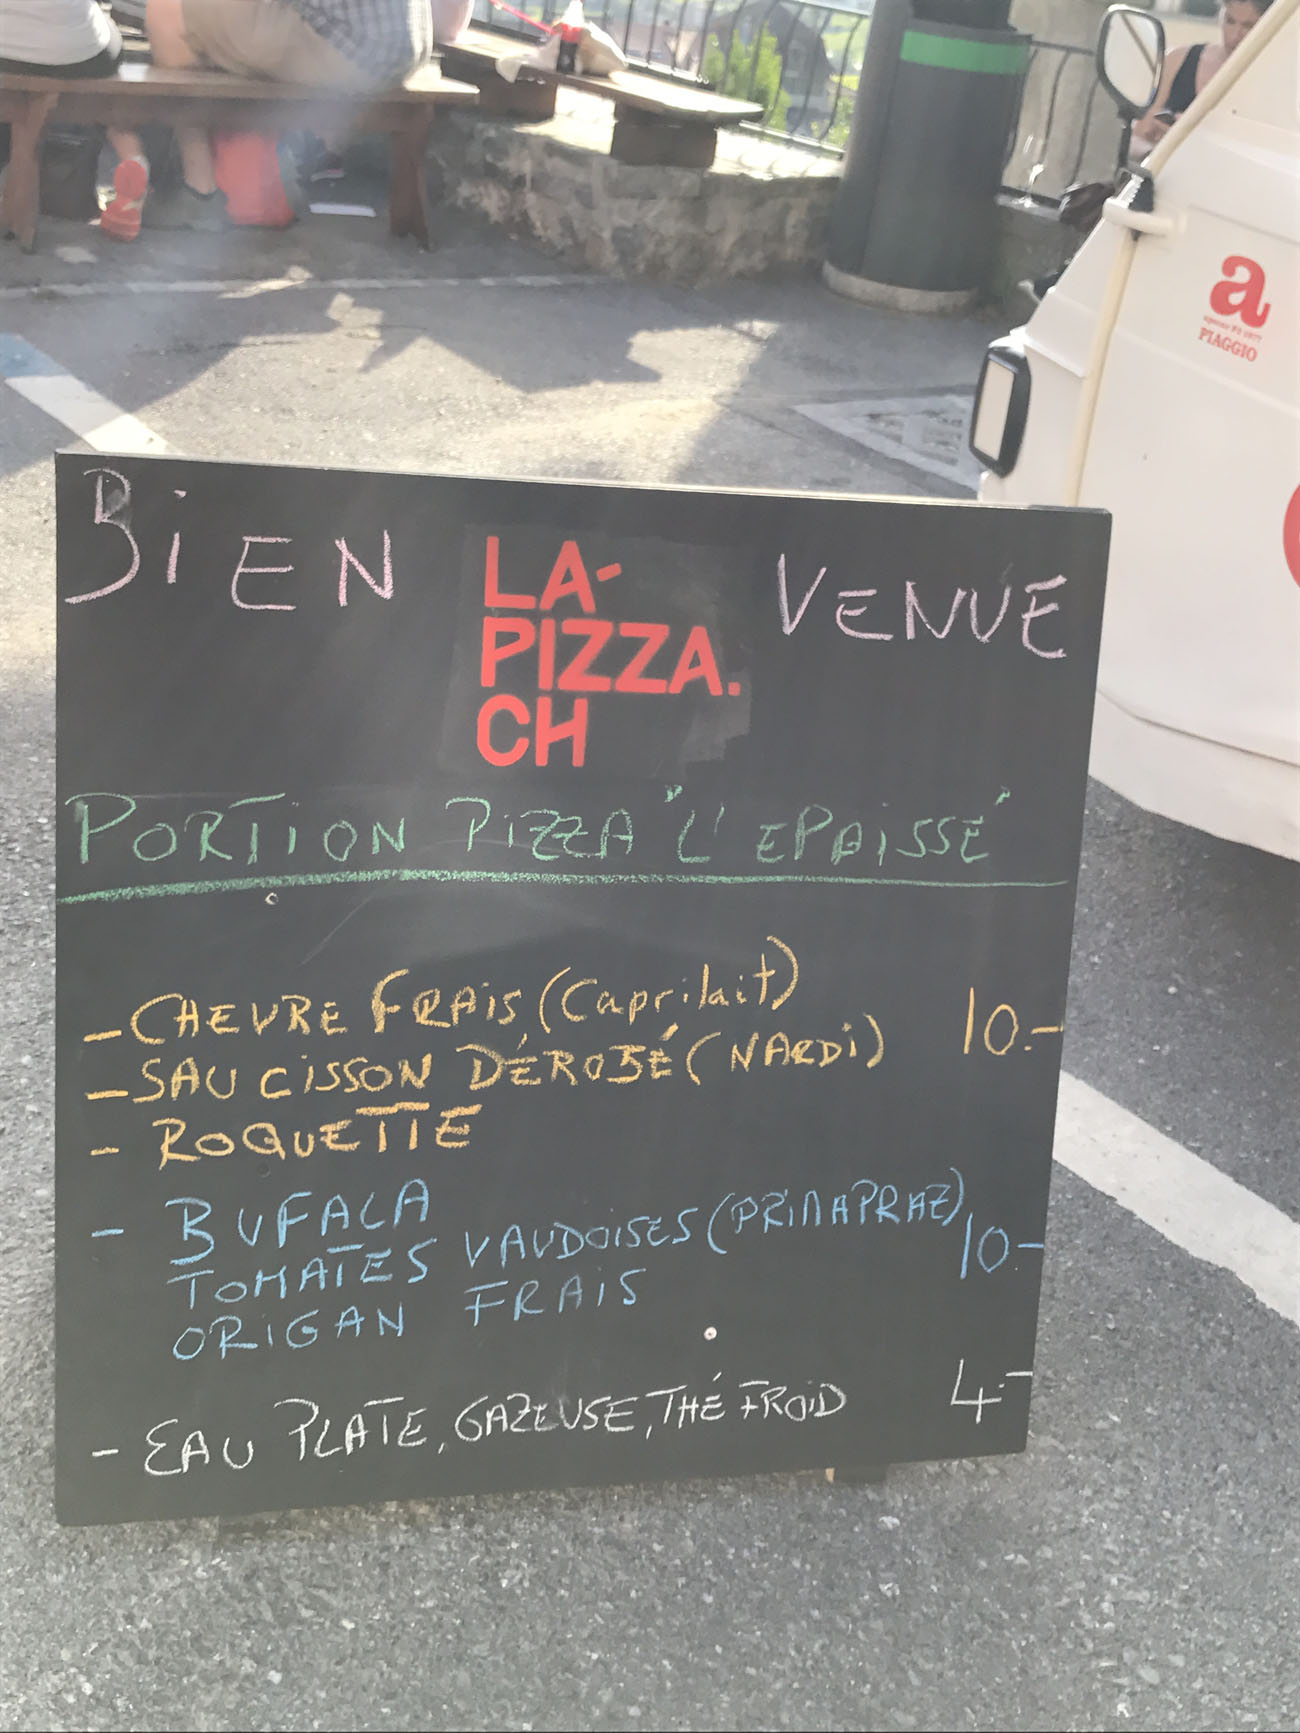 a
PIAGGIO
BiEN VENUE
LA-
PIZZA.
CH
PORTiON PIZZA "L'EPAISSE"
- CHEVRE FRAiS (Caprilait) 10.-
- SAUCiSSON DÉROBÉ (NARDi)
- ROQUETTE
- BUFALA
TOMATES VAUDOiSES (PRiMAPRAZ) 10.-
ORiGAN FRAiS
- EAU PLATE, GAZEUSE, THÉ FROiD 4.-